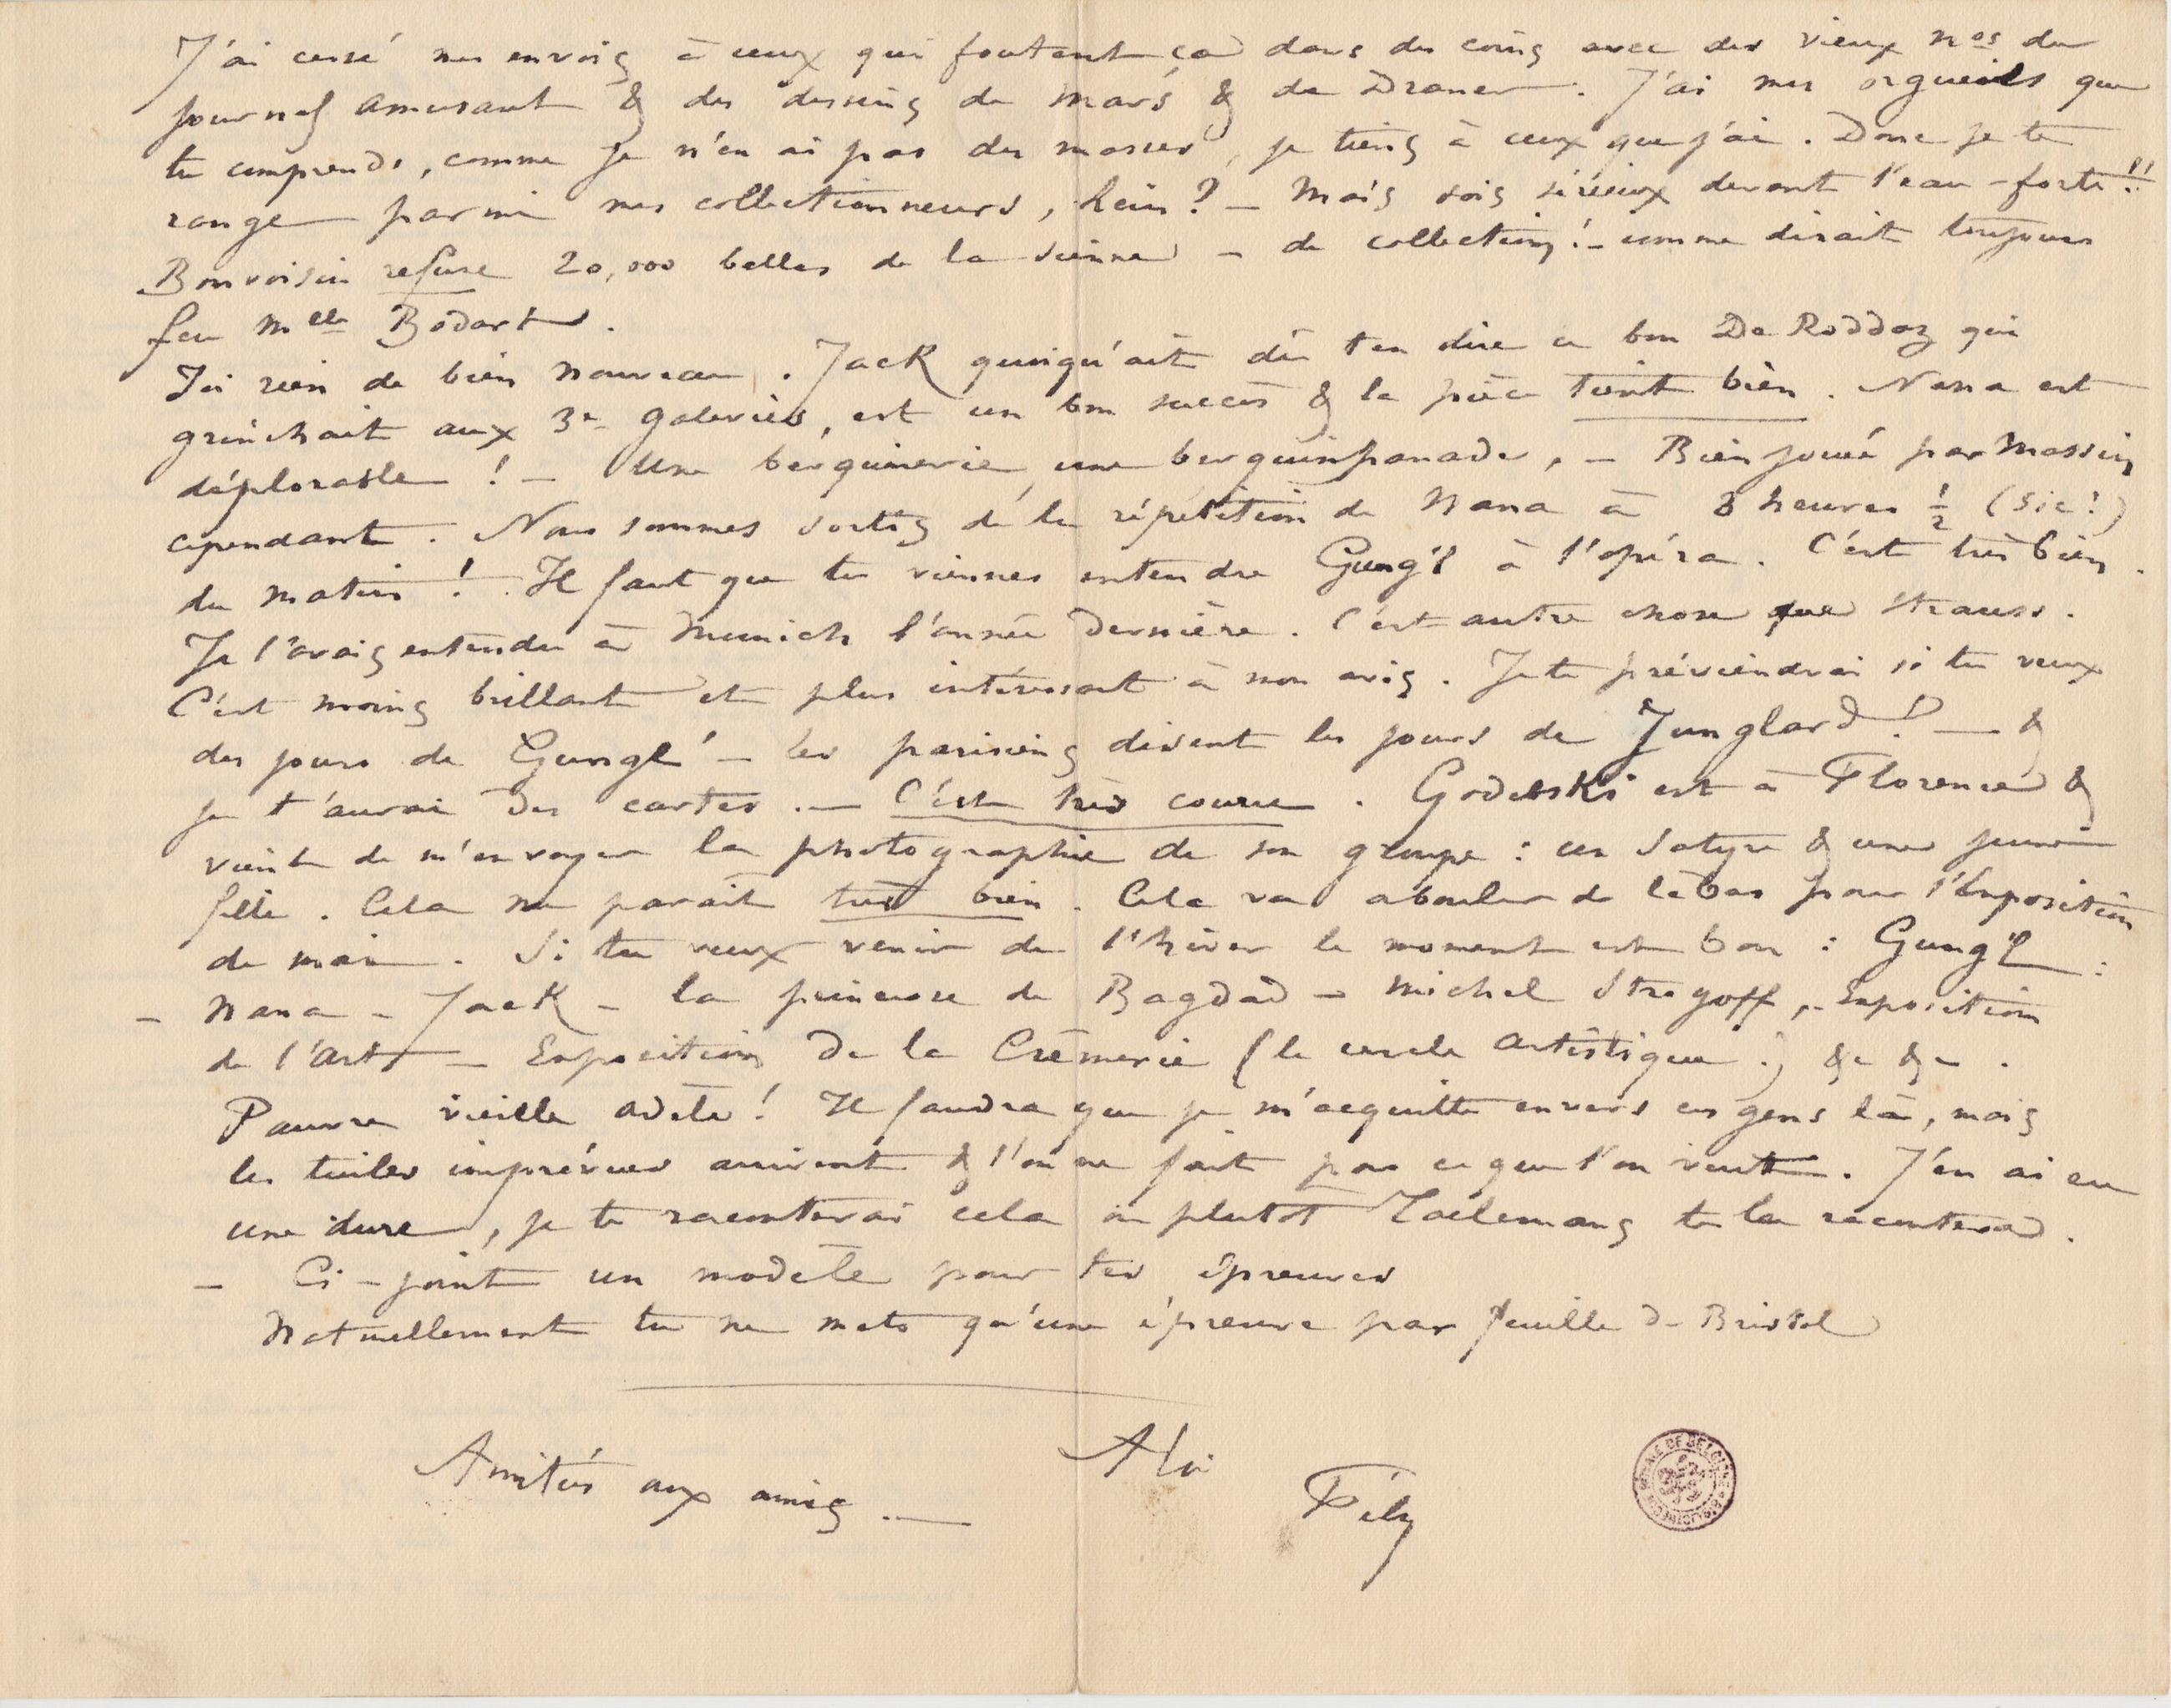 J'ai cessé mes envois à ceux qui foutent ça dans des coins avec des vieux nos du
journal amusant & des dessins de Mars & de Draner. J'ai mes orgueils que
tu comprends, comme je n'en ai pas des masses, je tiens à ceux que j'ai. Donc je te
range parmi mes collectionneurs, hein? – Mais sois sérieux devant l'eau-forte!!
Bonvoisin refuse 20,000 balles de la sienne – de collection! – comme disait toujours
feu Melle Bodart.
Ici rien de bien nouveau. Jack quoiqu'ait dû t'en dire ce bon De Roddaz qui
grinchait aux 3e galeries, est un bon succès & la pièce tient bien. Nana est
déplorable! – Une berquinerie une berquinpanade, – Bien joué par Massin
cependant. Nous sommes sortis de la répétition de Nana à 3 heures 1/2 (sic!)
du matin! Il faut que tu viennes entendre Gung'l à l'opéra. C'est très bien.
Je l'avais entendu à Munich l'année dernière. C'est autre chose que Strauss.
C'est moins brillant et plus intéressant à mon avis. Je te préviendrai si tu veux
des jours de Gungl' – les parisiens disent les jours de Junglard! – &
je t'aurai des cartes. – C'est très couru. Godebski est à Florence &
vient de m'envoyer la photographie de son groupe: un Satyre & une jeune
fille. Cela me parait très bien. Cela va abouler de là bas pour l'Exposition
de mai. Si tu veux venir de l'hiver le moment est bon: Gung'l:
– Nana – Jack – la princesse de Bagdad – Michel Strogoff, – Exposition
de l'art – Exposition de la Crémerie (le cercle artistique.) &c &c.
Pauvre vieille Adèle! Il faudra que je m'acquitte envers ces gens là, mais
les tuiles imprévues arrivent & l'on ne fait pas ce que l'on veut. J'en ai eu
une dure, je te raconterai cela ou plutot Taelemans te la racontera.
– Ci-joint un modèle pour tes épreuves
Naturellement tu ne mets qu'une épreuve par feuille de Bristol
Amitiés aux amis. –
A toi
Fély